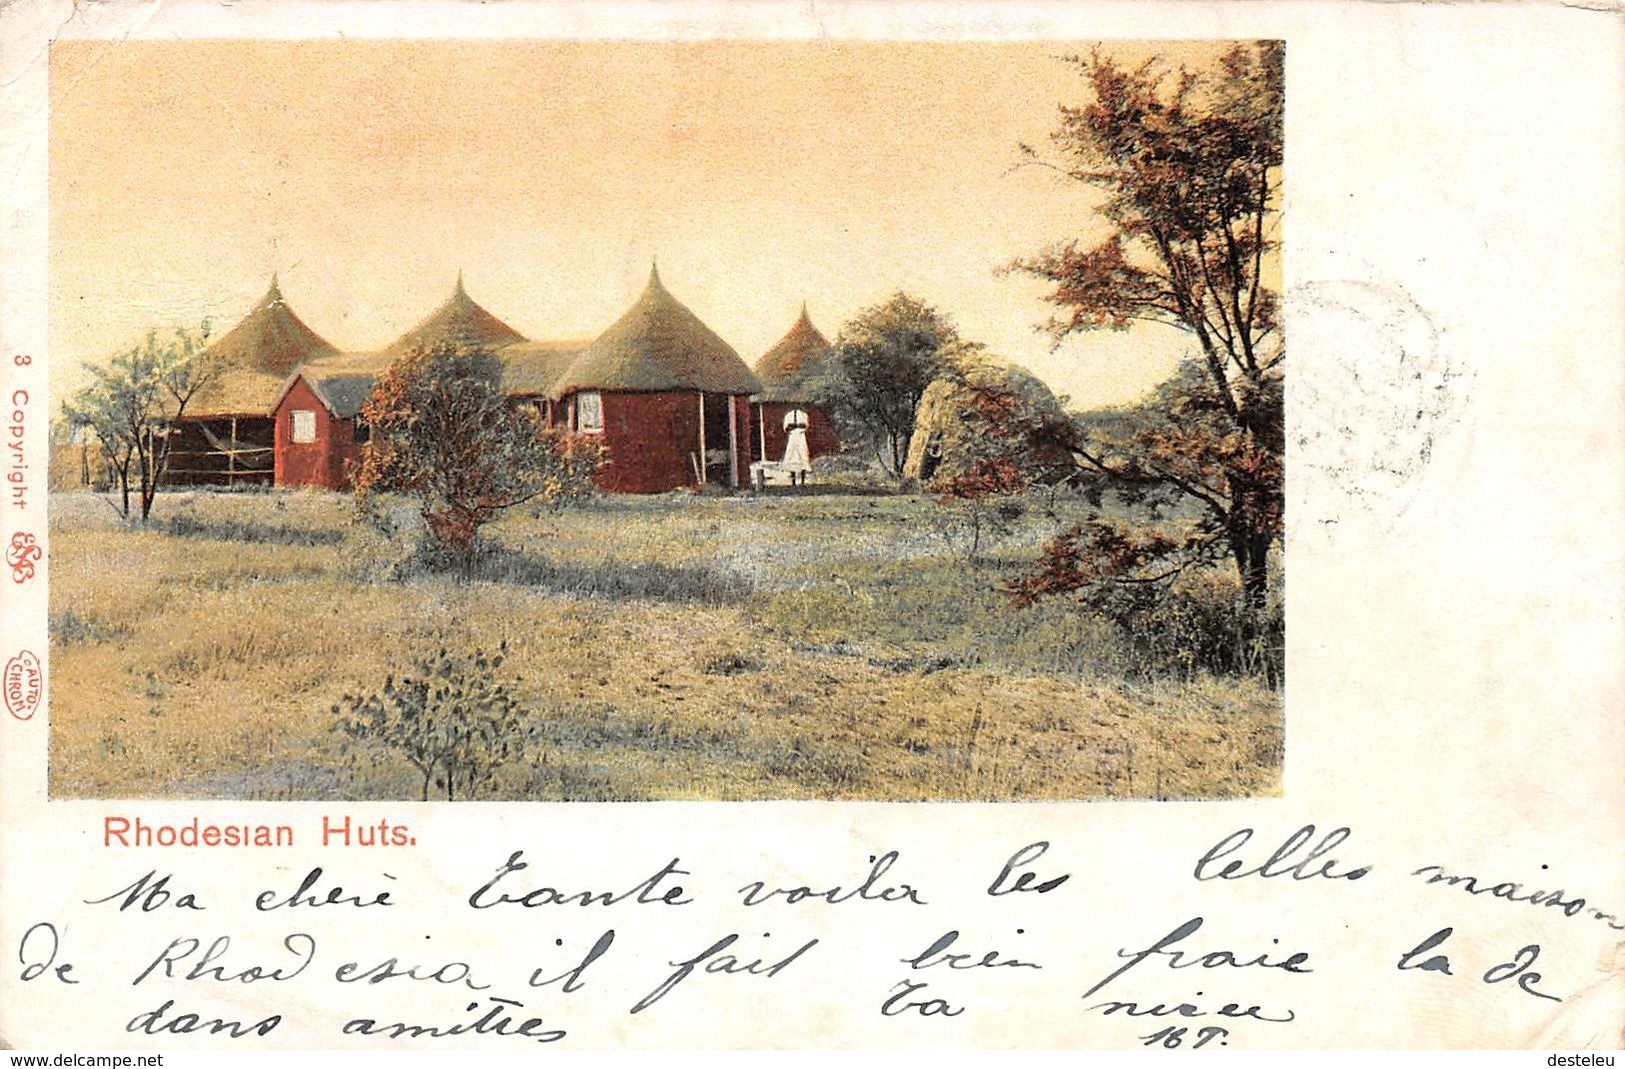 3 Copyright
AUTO-CHROM
Rhodesian Huts.
Ma chère Tante voila les belles maison
de Rhodesia il fait bien fraie la de
dans amitïes ta niece
www.delcampe.net
desteleu